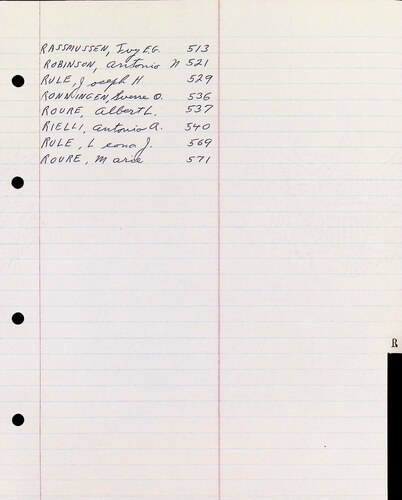 RASSMUSSEN, Ivy E.G. 513
ROBINSON, Antonio N 521
RULE, Joseph H. 529
RONNINGEN, Sverre O. 536
ROURE, Albert L. 537
RIELLI, Antonio A. 540
RULE, Leona J. 569
ROURE, Marie 571
R